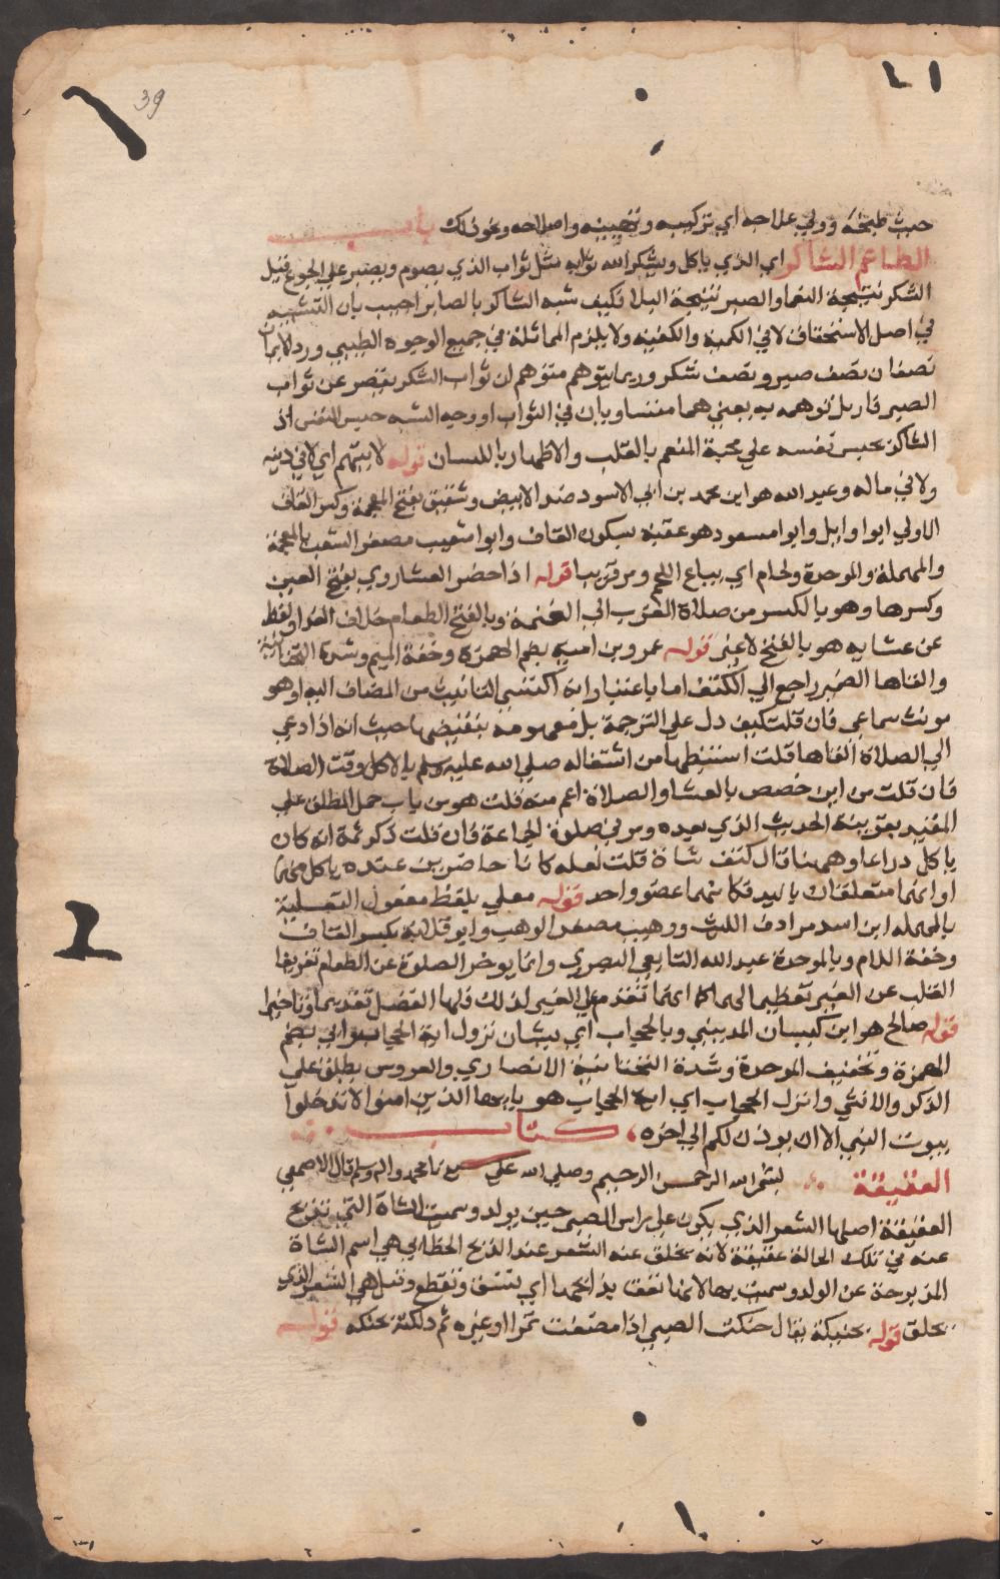 39
حيث طبخه وولي علاجه اي تركيبه وتهيئته واصلاحه ونحو ذلك باب
الطاعم الشاكر اي الذي ياكل ويشكر الله ثوابه مثل ثواب الذي يصوم ويصبر علي الجوع فقيل
الشكر نتيجة النعما والصبر نتيجة البلا فكيف شبه الشاكر بالصابر اجيب بان التشبيه
في اصل الاستحقاق لا في الكمية والكيفية ولا يلزم المماثلة في جميع الوجوه الطيبي ورد الايمان
نصفان نصف صبر ونصف شكر وربما يتوهم متوهم ان ثواب الشكر يقصر عن ثواب
الصبر فازيل توهمه به يعني هما متساويان في الثواب او وجه الشبه حبس النفس اذ
الشاكر يحبس نفسه علي محبة المنعم بالقلب والاظهار باللسان قوله لا يتهم اي لا في دينه
ولا في ماله وعبد الله هو ابن محمد بن ابي الاسود ضد الابيض وشقيق بفتح المعجمة وكسر القاف
الاولي ابوا وايل وابوا مسعود هو عقبة بسكون القاف وابوا شعيب مصغر الشعب بالمعجمة
والمهملة والموحدة ولحام اي بياع اللحم ومر قريبا قوله اذا حضر العشا روي بفتح العين
وكسرها وهو بالكسر من صلاة المغرب الي العتمة وبالفتح الطعام خلاف الغدا ولفظ
عن عشايه هو بالفتح لا غير قوله عمرو بن امية بضم الهمزة وخفة الميم وشدة التحتانية
والقاها الضمير راجع الي الكتف اما باعتبار انه اكتسي التانيث من المضاف اليه او هو
مونث سماعي فان قلت كيف دل علي الترجمة بل مفهومه يقتضي حيث انه اذا دعي
الي الصلاة القاها قلت استنبطها من اشتغاله صلي الله عليه وسلم بالاكل وقت الصلاة
فان قلت من اين خصص بالعشا والصلاة اعم منه قلت هو من باب حمل المطلق علي
المقيد بقرينة الحديث الذي بعده ومر في صلوة الجماعة فان قلت ذكر ثمة انه كان
ياكل ذراعا وههنا قال كتف شاة قلت لعله كانا حاضرين عنده ياكل منهما
او انهما متعلقان باليد فكانهما عضو واحد قوله معلي بلفظ مفعول التعلية
بالمهملة ابن اسد مرادف الليث ووهيب مصغر الوهب وابو قلابة بكسر القاف
وخفة اللام وبالموحدة عبد الله التابعي البصري وانما يوخر الصلوة عن الطعام تفريغا
القلب عن الغير تعظيما لها كما انها تقدم علي الغير لذلك فلها الفضل تقديما وتاخيرا
قوله صالح هو ابن كيسان المديني وبالحجاب اي بشان نزول اية الحجاب وابي بضم
الهمزة وتخفيف الموحدة وشدة التحتانية الانصاري والعروس يطلق علي
الذكر والانثي وانزل الحجاب اي اية الحجاب هو يايها الذين امنوا لا تدخلوا
بيوت النبي الا ان يوذن لكم الي اخره كتاب
العقيقة بسم الله الرحمن الرحيم وصلي الله علي محمد واله وسلم قال الاصمعي
العقيقة اصلها الشعر الذي يكون علي راس الصبي حين يولد وسميت الشاة التي تذبح
عنه في تلك الحالة عقيقة لانه يحلق عنه الشعر عند الذبح الخطابي هي اسم الشاة
المذبوحة عن الولد وسميت بها لانها تعق مذابحها اي تشق وتقطع وقيل هي الشعر الذي
يحلق قوله تحنيكه يقال حنكت الصبي اذا مضغت تمرا او غيره ثم دلكته بحنكه قوله